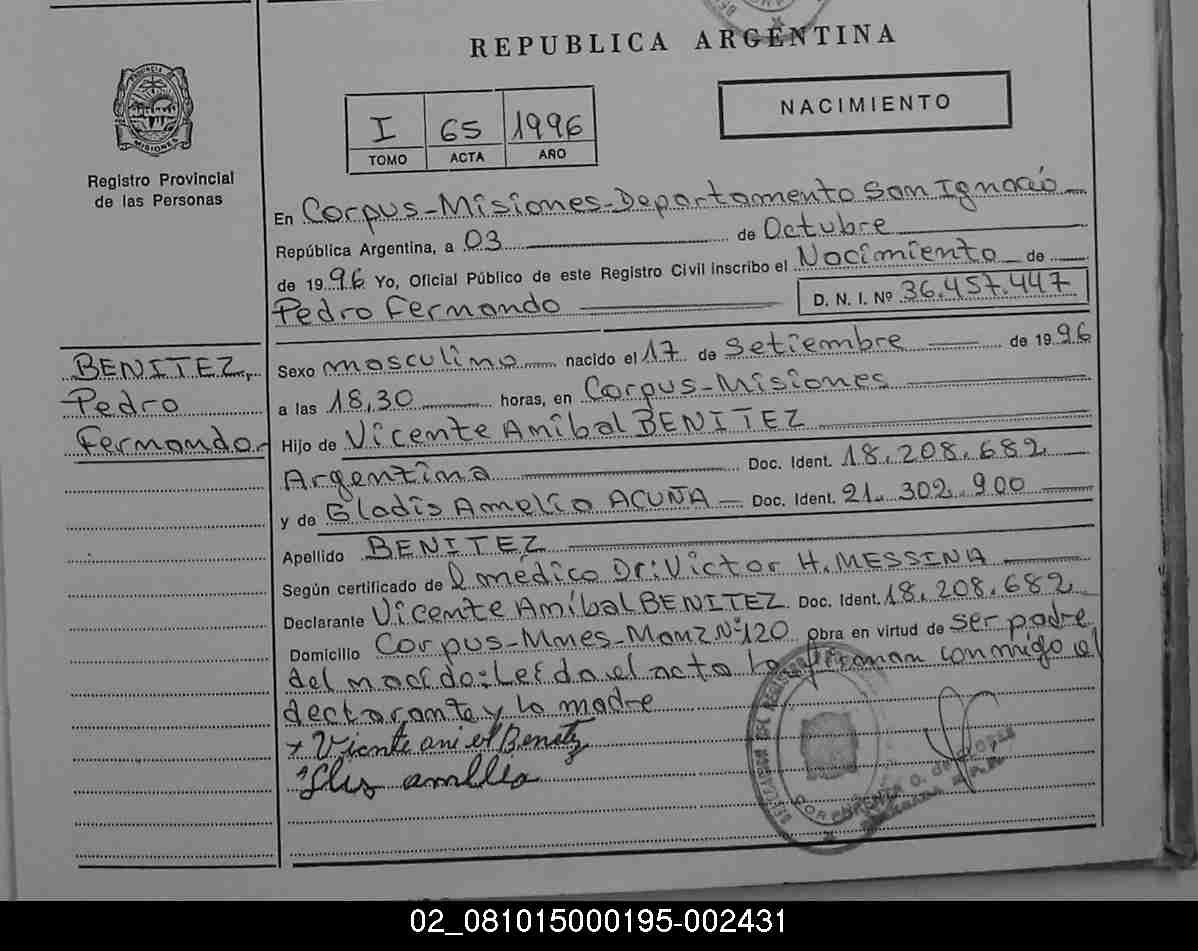 REPUBLICA ARGENTINA
NACIMIENTO
I 65 1996
TOMO ACTA AÑO
PROVINCIA DE MISIONES
Registro Provincial
de las Personas
En Corpus-Misiones-Departamento San Ignacio
República Argentina, a 03 de Octubre
de 1996 Yo, Oficial Público de este Registro Civil inscribo el Nacimiento de
Pedro Fernando D. N. I. Nº 36.457.447
BENITEZ,
Pedro
Fernando.
Sexo masculino nacido el 17 de Setiembre de 1996
a las 18,30 horas, en Corpus-Misiones
Hijo de Vicente Aníbal BENITEZ
Argentina Doc. Ident. 18.208.682
y de Gladis Amelia ACUÑA Doc. Ident. 21.302.900
Apellido BENITEZ
Según certificado de l médico Dr: Victor H. MESSINA
Declarante Vicente Aníbal BENITEZ Doc. Ident. 18.208.682
Domicilio Corpus-Mnes-Manz Nº 120 Obra en virtud de ser padre
del nacido: Leída el acta la firman conmigo el
declarante y la madre
02_081015000195-002431